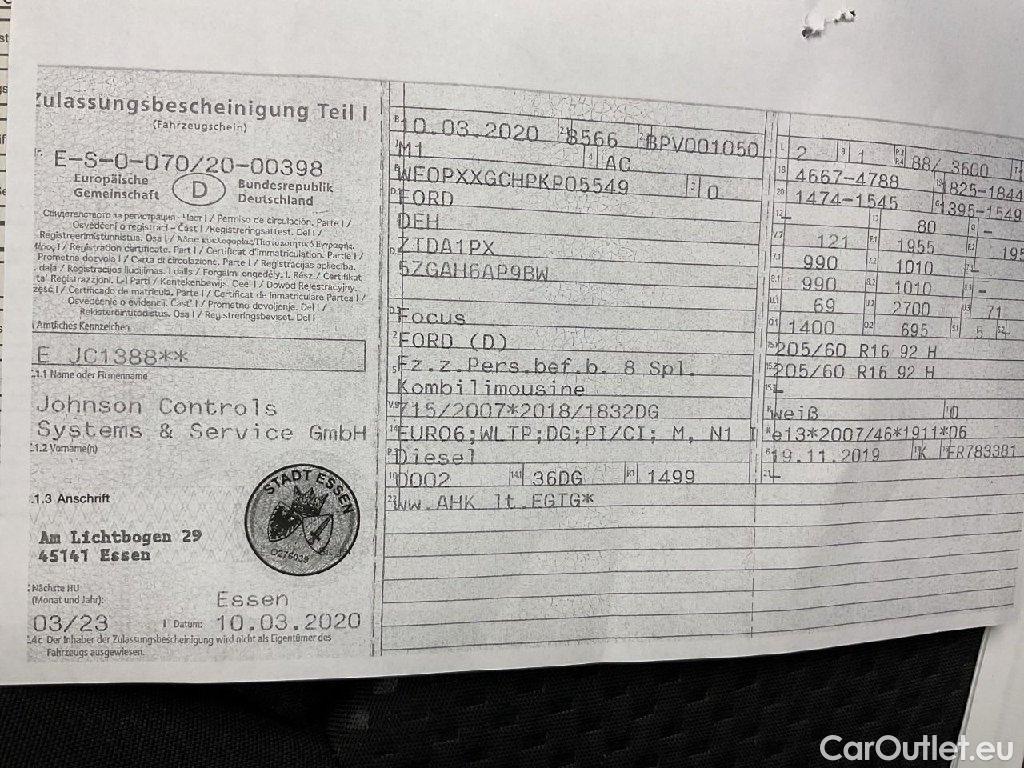 Zulassungsbescheinigung Teil I
(Fahrzeugschein)
E-S-0-070/20-00398
Europäische
Gemeinschaft
D
Bundesrepublik
Deutschland
Amtliches Kennzeichen
E JC1388**
C.1.1 Name oder Firmenname
Johnson Controls
Systems & Service GmbH
C.1.2 Vorname(n)
C.1.3 Anschrift
Am Lichtbogen 29
45141 Essen
STADT ESSEN
Nächste HU
(Monat und Jahr):
03/23
Essen
I Datum: 10.03.2020
C.4c Der Inhaber der Zulassungsbescheinigung wird nicht als Eigentümer des
Fahrzeugs ausgewiesen.
10.03.2020 8566 BPV001050
M1 AC
WF0PXXGCHPKP05549 0
FORD
DEH
ZTDA1PX
5ZGAH6AP9BW
Focus
FORD (D)
Fz.z.Pers.bef.b. 8 Spl.
Kombilimousine
715/2007*2018/1832DG
EURO6;WLTP;DG;PI/CI; M, N1 I
Diesel
0002 36DG 1499
ww.AHK lt.EGTG*
2 1 88/ 3600
4667-4788 1825-1844
1474-1545 1395-1549
- 80 -
121 1955 195
990 1010 -
990 1010 -
69 2700 71
1400 695 5
205/60 R16 92 H
205/60 R16 92 H
-
weiß 0
e13*2007/46*1911*06
19.11.2019 K
-
CarOutlet.eu